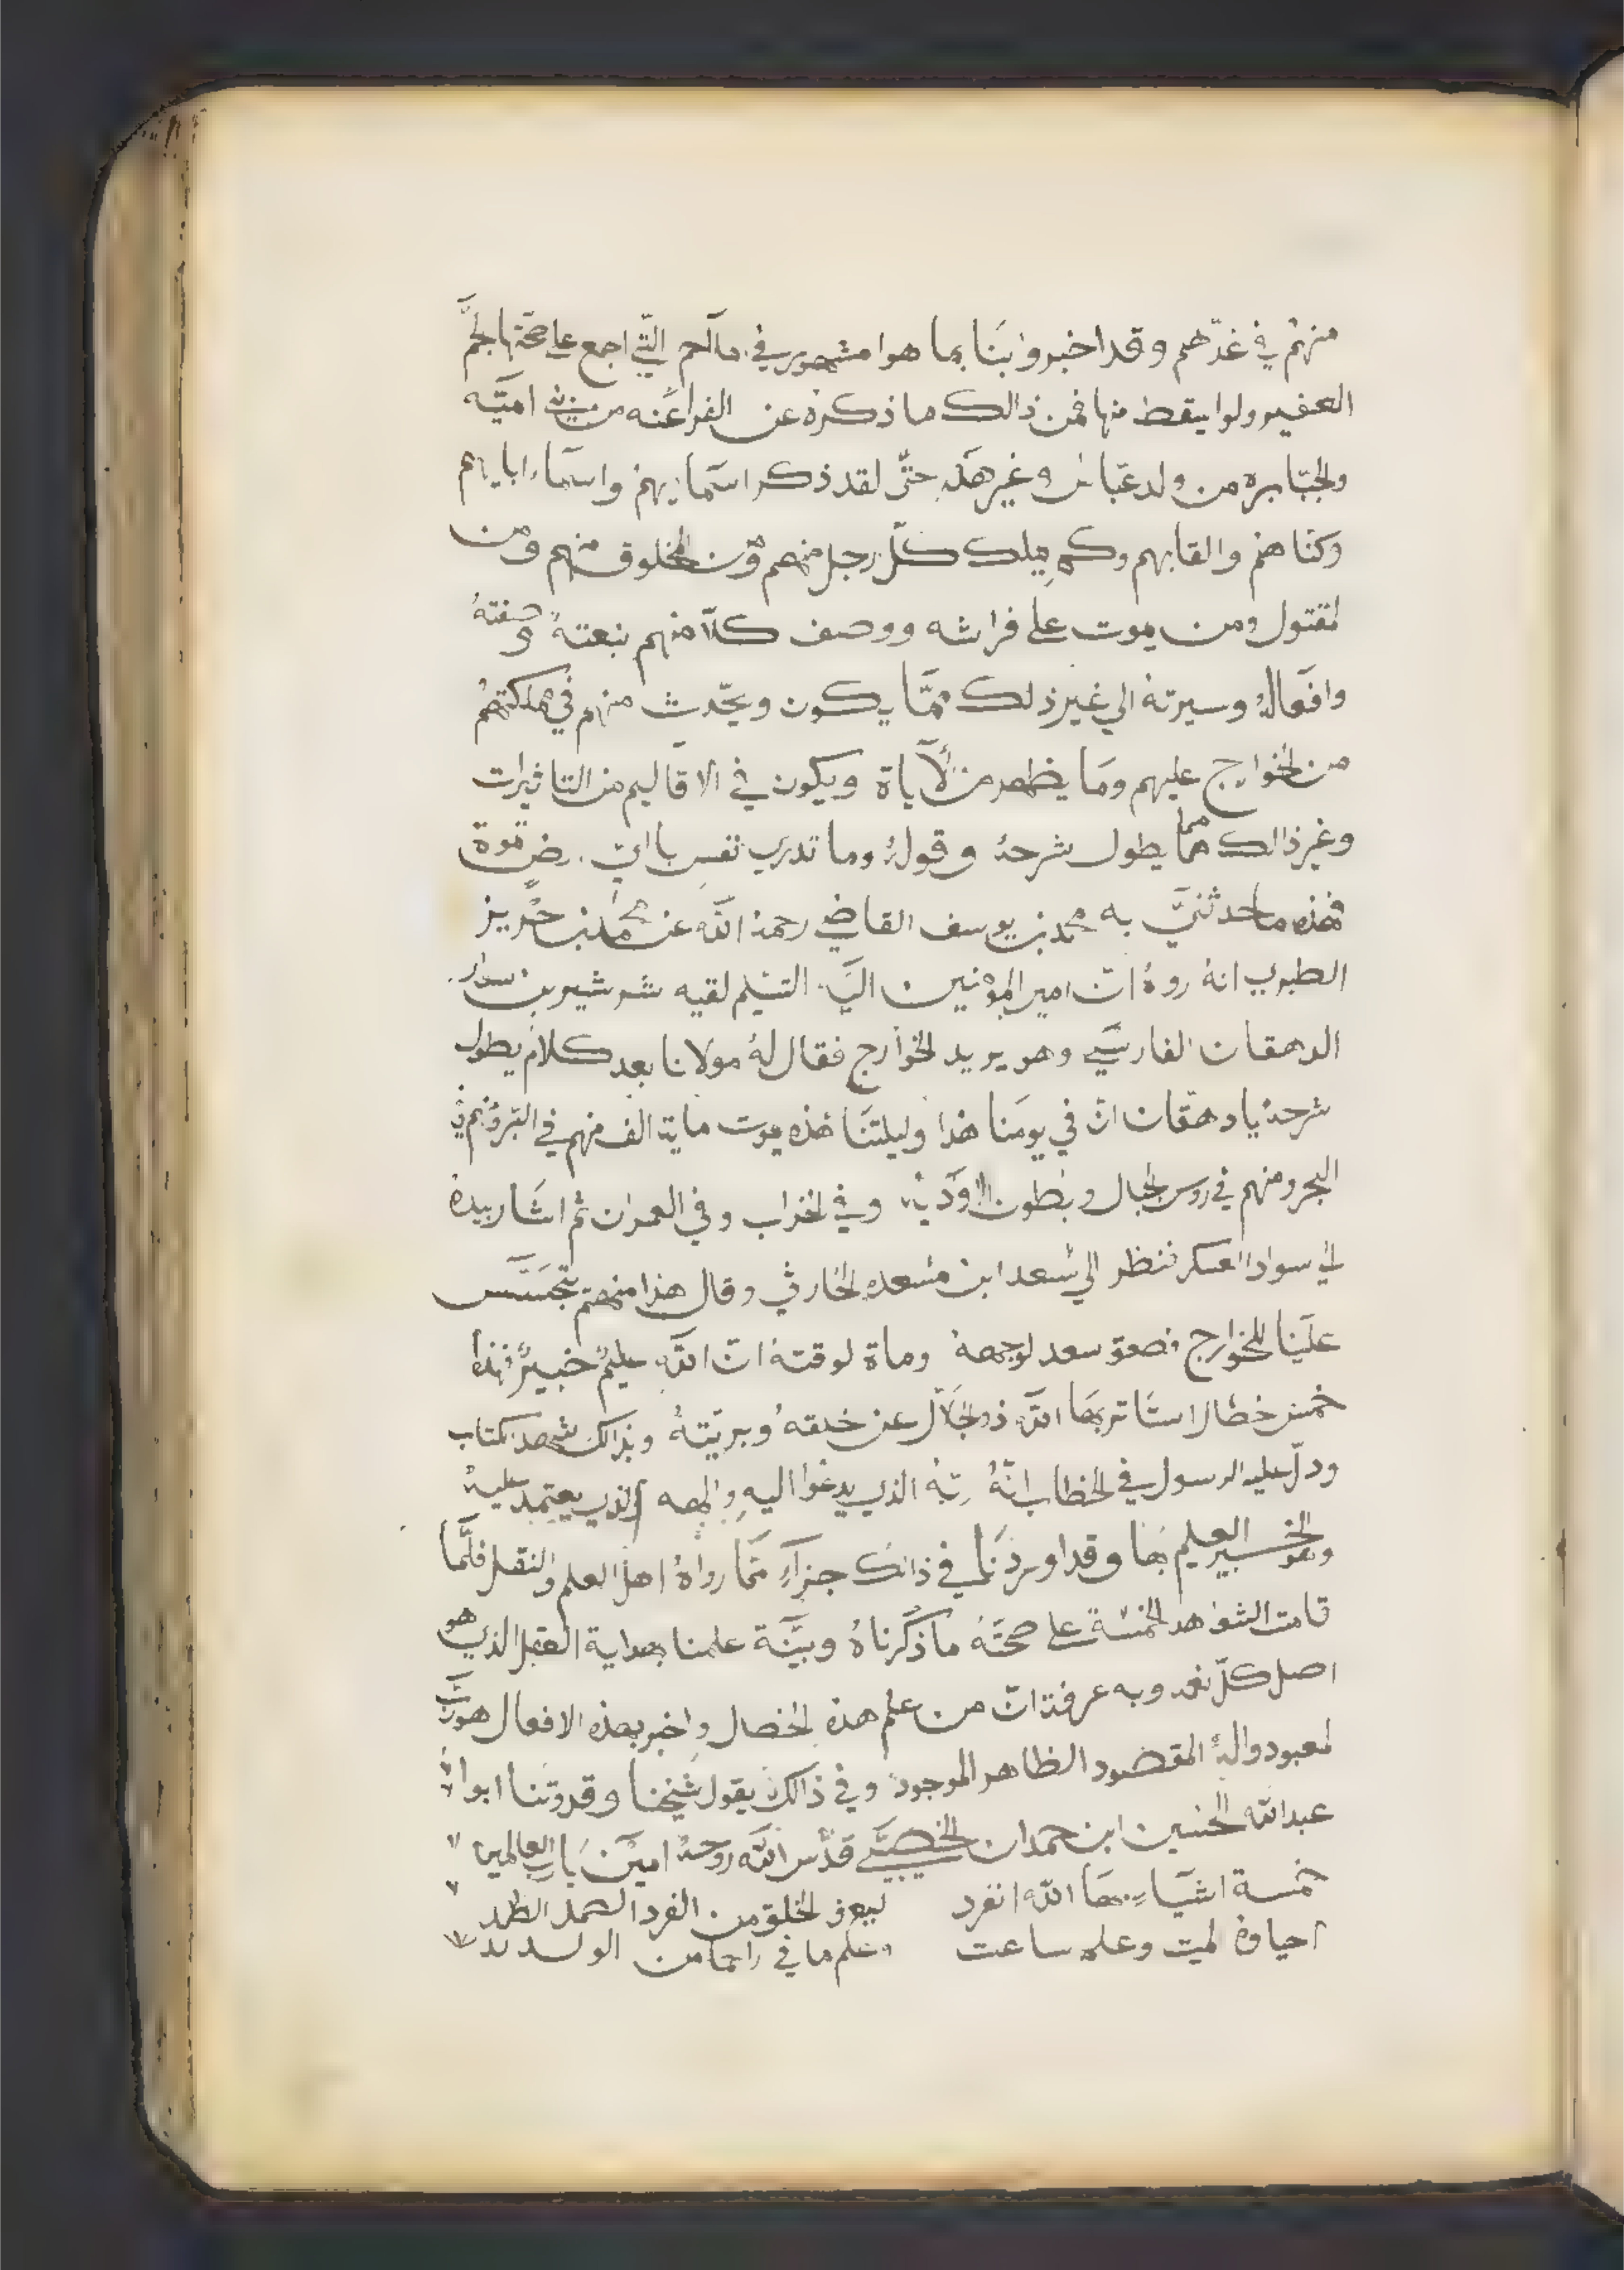 منهم في غدّهم وقد اخبروا بنَا بما هوا مشهور في ملآحم التّي اجمع على صحّتها الجمَّ
الغفير ولوا يقط منها فمن ذالك ما ذكره عن الفراعَنه من بني اميّه
والجبّابره من ولد عبّاس وغير هَله حتّى لقد ذكر اسَمايهم واسمَاء ابايهم
وكناهم والقابهم وكم يملك كلّ رجل منهم ومن المخلوق منهم ومن
المقتول ومن يموت على فراشه ووصف كلاّ منهم بنعتهُ وصفتهُ
وافعالهُ وسيرتهُ الي غير ذلك ممَّا يكون ويحّدث منهم في مملكتهم
من الخوارج عليهم ومَا يظهر من الأياة ويكون في الاقاليم من التاثيرات
وغير ذالك مما يطول شرحهُ وقولهُ وما تدري نفس باايّ ارض تموة
فهذه ما حدثنيّ به محمد بن يوسف القاضي رحمهُ اللّه عن محمّد بن جرير
الطبري انهُ رواهُ انّ امير المؤمنين اليَه التسلم لقيه شرشير بن سوار
الدهقان الفارسّي وهو يريد الخوارج فقال لهُ مولانا بعد كلام يطول
شرحهُ يا دهقان انّ في يومنَا هذا وليلتنَا هذه يموت ماية الف منهم في البّر ومنهم في
البحر ومنهم في روس الجبال وبطون الاودَية وفي الخراب وفي العمران ثم اشَار بيده
الي سواد العسكر فنظر الي سعد ابن مسعده الحارثي وقال هذا منهم يتجسَّس
علَينا للخوارج فصعق سعد لوجههُ وماة لوقتهُ انّ اللّه عليمٌ خبيرٌ فهذا
خمس خصال استَاثر بهَا اللّه ذو الجلاّل عن خلقهُ وبريّتهُ وبذالك شهد الكتاب
ودلّ عليه الرسول في الخطاب انّهُ ربّهُ الذي يدعوا اليهِ والهه الذي يعتمد عليهُ
وهو الخبير العليم بهَا وقد اوردنَا في ذالك جزآءٍ ممّا رواهُ اهل العلم والنقل فلّمَا
قامت الشواهد الخمسَة على صحتَهُ ما ذكّرناهُ وبيّنَة علمنا بهداية العقل الذي هو
اصل كلّ نعمه وبه عرفة انّ من علم هذهِ الخصال واخبر بهذه الافعال هو ربّ
المعبود والهُ المقصود الظاهر الموجود وفي ذالك يقول شيخنا وقدوتنا ابوا
عبد اللّه الحسين ابن حمدان الخصيبّي قدّس اللّه روحهُ اميّن يَا رب العالمين
خمسة اشيَاءٍ بهَا اللّه انفرد ليعرف الخلق من الفرد الصمد
احياوهُ لميت وعلمه ساعت وعلم ما في راحما من الولد